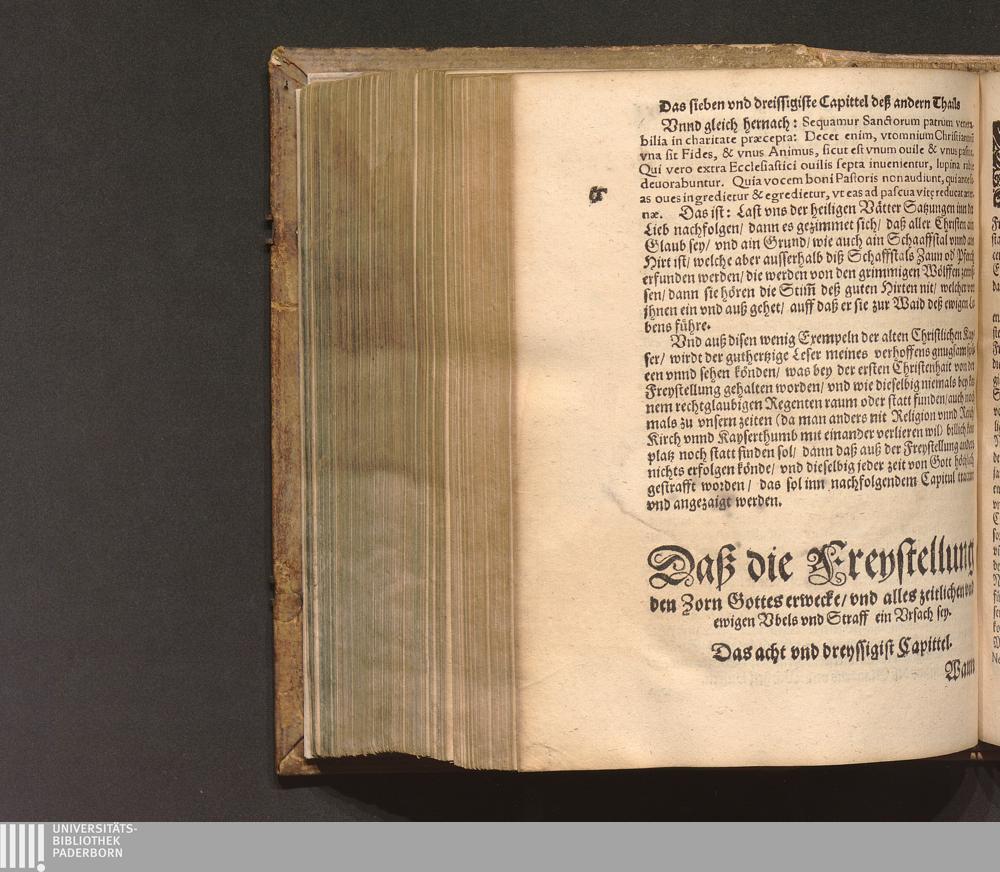 Das sieben vnd dreissigiste Capittel deß andern Thails
Vnnd gleich hernach: Sequamur Sanctorum patrum
bilia in charitate præcepta: Decet enim, vt omnium
vna sit Fides, & vnus Animus, sicut est vnum ouile & vnus
Qui vero extra Ecclesiastici ouilis septa inuenientur, lupina
deuorabuntur. Quia vocem boni Pastoris non audiunt, qui
as oues ingredietur & egredietur, vt eas ad pascua vitę
næ. Das ist: Last vns der heiligen Vätter Satzungen inn der
Lieb nachfolgen/ dann es gezimmet sich/ daß aller Christen ain
Glaub sey/ vnd ain Grund/ wie auch ain Schaaffstal vnnd ain
Hirt ist/ welche aber ausserhalb diß Schaffstals Zaun od' Pferch
erfunden werden/ die werden von den grimmigen Wölffen
sen/ dann sie hören die Stim̃ deß guten Hirten nit/ welcher vor
jhnen ein vnd auß gehet/ auff daß er sie zur Waid deß ewigen
bens führe.
Vnd auß disen wenig Exempeln der alten Christlichen
ser/ wirdt der guthertzige Leser meines verhoffens gnugsam
een vnnd sehen könden/ was bey der ersten Christenhait von der
Freystellung gehalten worden/ vnd wie dieselbig niemals bey
nem rechtglaubigen Regenten raum oder statt funden/ auch noch
mals zu vnsern zeiten (da man anders nit Religion vnnd Reich
Kirch vnnd Kayserthumb mit einander verlieren wil) billich kein
platz noch statt finden sol/ dann daß auß der Freystellung anders
nichts erfolgen könde/ vnd dieselbig jeder zeit von Gott höchlich
gestrafft worden/ das sol inn nachfolgendem Capitul
vnd angezaigt werden.
Daß die Freystellung
den Zorn Gottes erwecke/ vnd alles zeitlichen vnd
ewigen Vbels vnd Straff ein Vrsach sey.
Das acht vnd dreyssigist Capittel.
Wann
UNIVERSITÄTS-
BIBLIOTHEK
PADERBORN